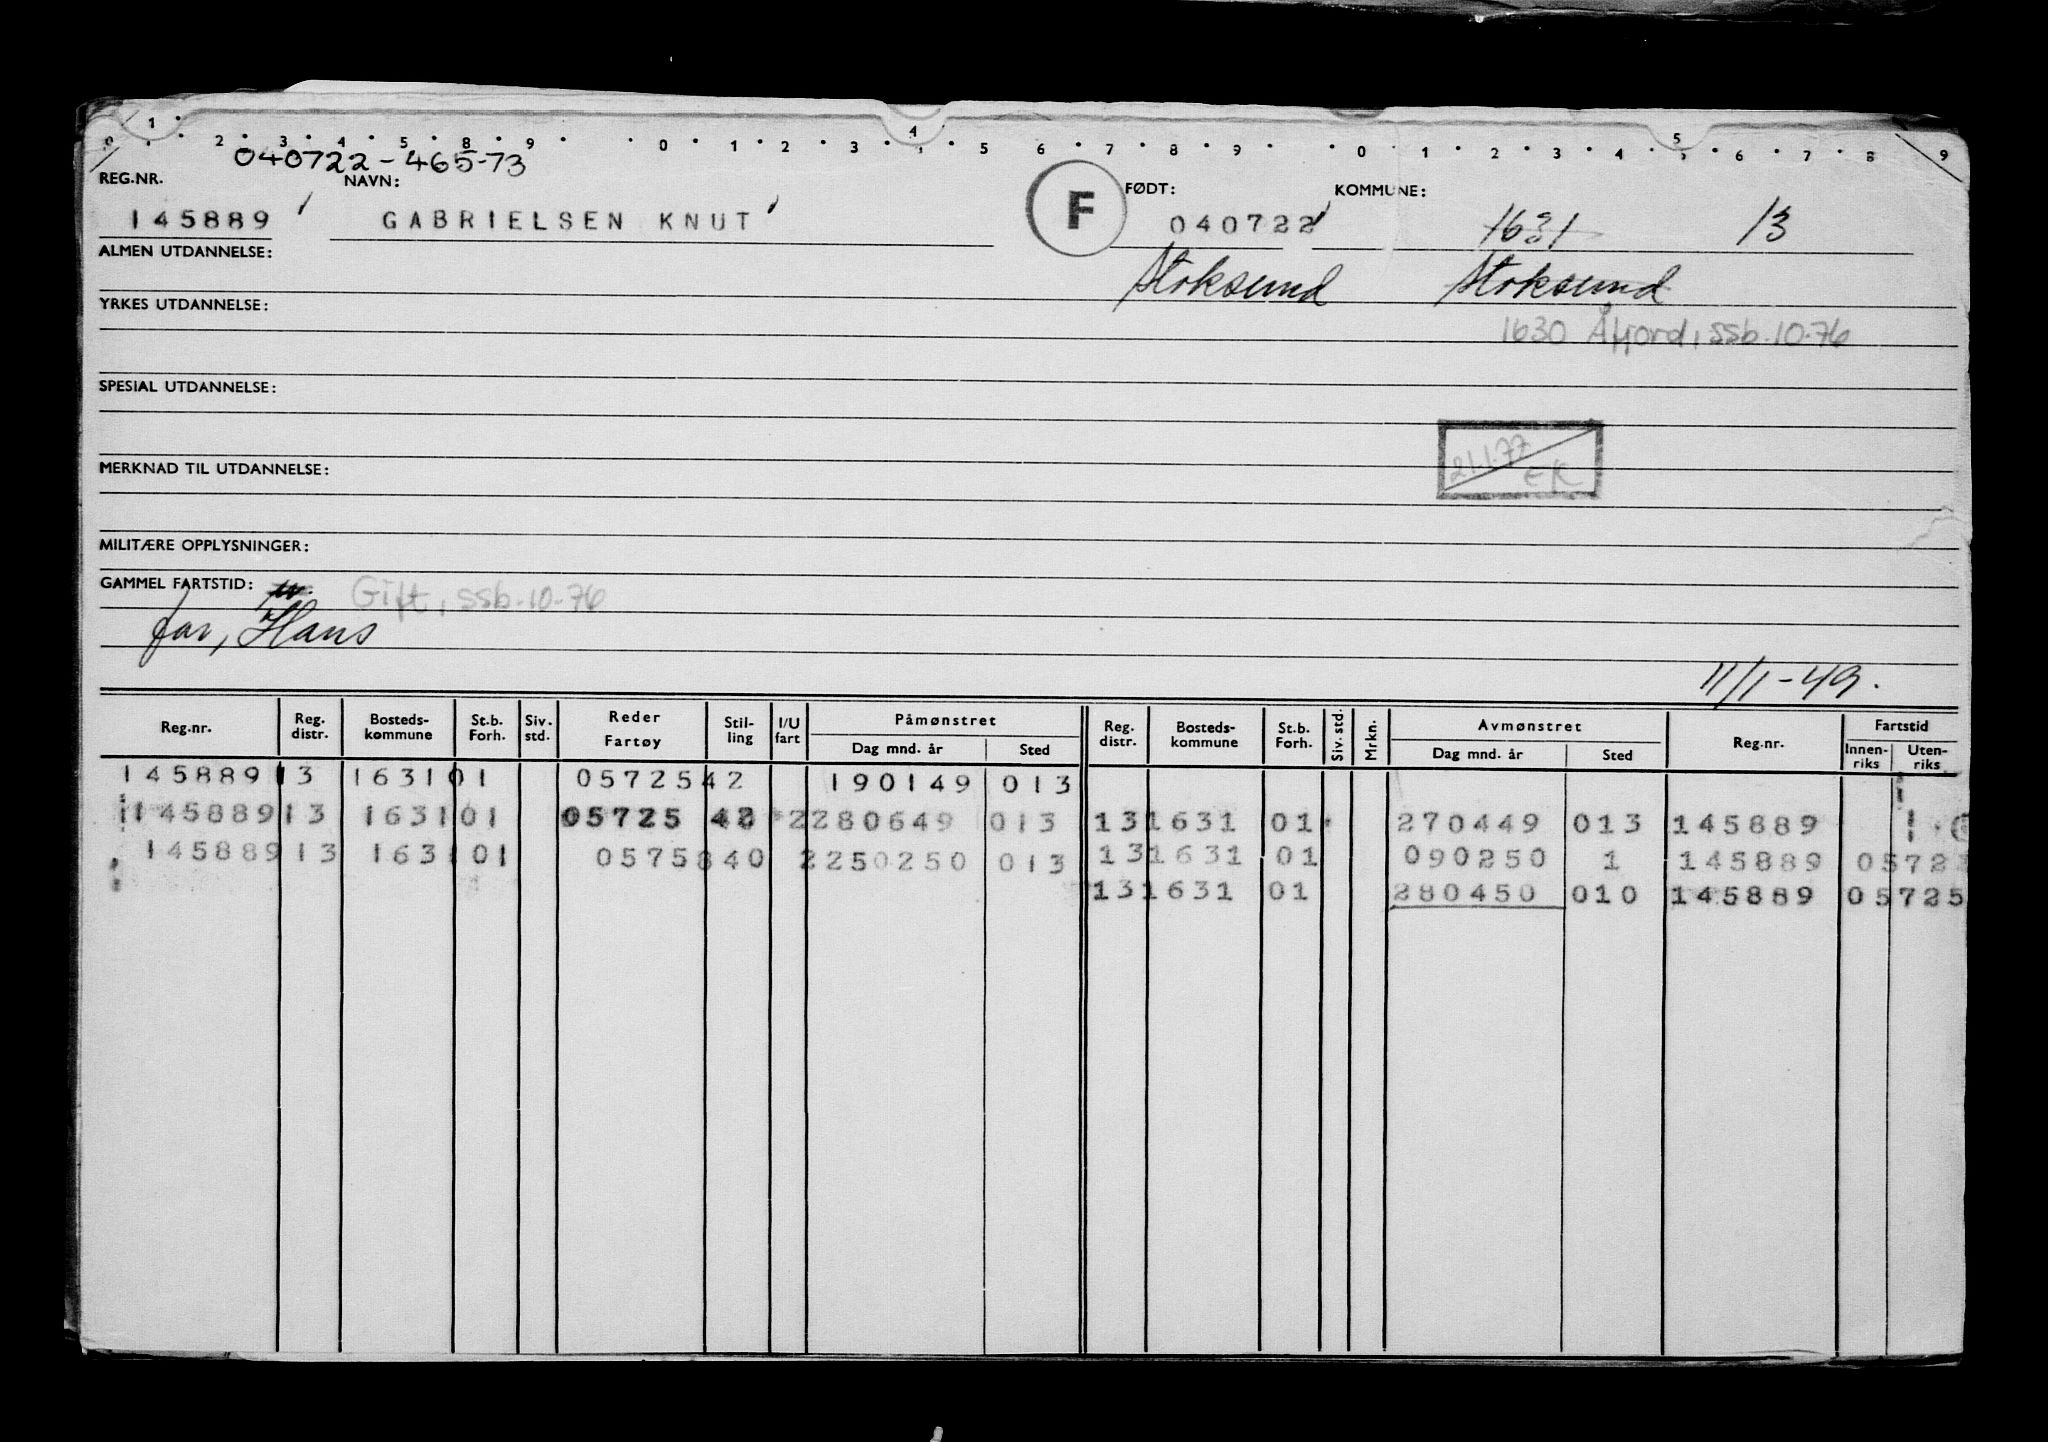 0 1 2 3 4 5 6 8 9 0 1 2 3 4 5 6 7 8 9 0 1 2 3 4 5 6 7 8 9
040722-465-73
REG.NR. NAVN: F FØDT: KOMMUNE:
145889 GABRIELSEN KNUT 040722 1631 13
ALMEN UTDANNELSE: Stoksund Stoksund
YRKES UTDANNELSE: 1630 Åfjord, ssb.10.76
SPESIAL UTDANNELSE:
MERKNAD TIL UTDANNELSE: 21.1.77 EK
MILITÆRE OPPLYSNINGER:
GAMMEL FARTSTID: Gift, ssb.10.76
far, Hans
11/1-49.
Reg.nr. Reg. distr. Bosteds-kommune St.b. Forh. Siv. std. Reder Fartøy Stil-ling I/U fart Påmønstret Dag mnd. år Sted Reg. distr. Bosteds-kommune St.b. Forh. Siv. std. Mrkn. Avmønstret Dag mnd. år Sted Reg.nr. Fartstid Innen-riks Uten-riks
145889 13 1631 01 05725 42 190149 013
145889 13 1631 01 05725 42 2 280649 013 13 1631 01 270449 013 145889
145889 13 1631 01 05758 40 2 250250 013 13 1631 01 090250 1 145889 0572
13 1631 01 280450 010 145889 05725